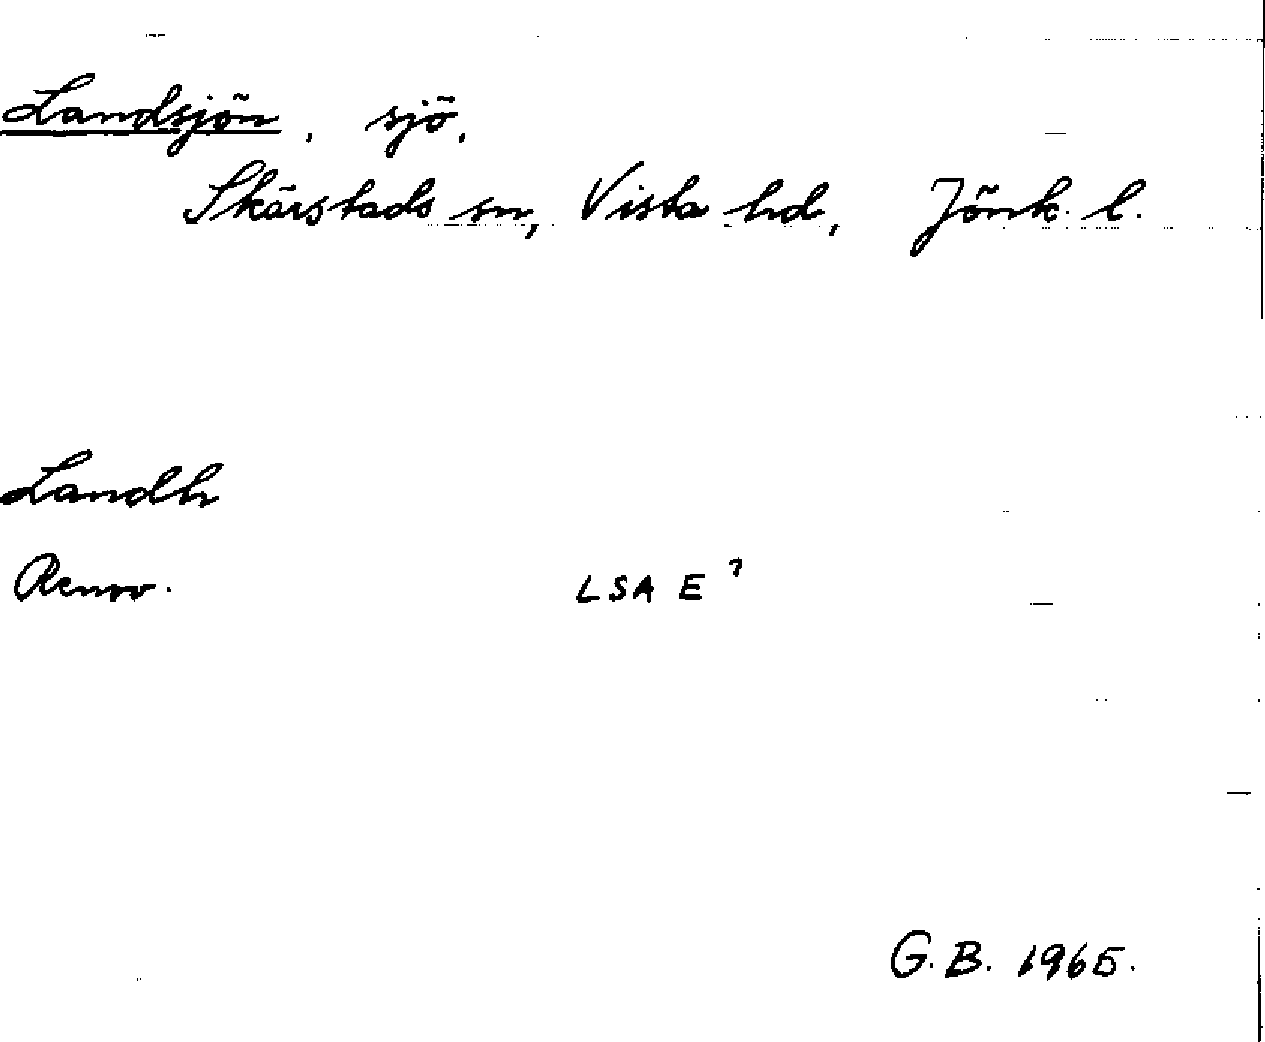 Landsjön, sjö.
Skärstads sn, Vista hd, Jönk. l.
Landh
Renov. LSA E⁷
G.B. 1965.